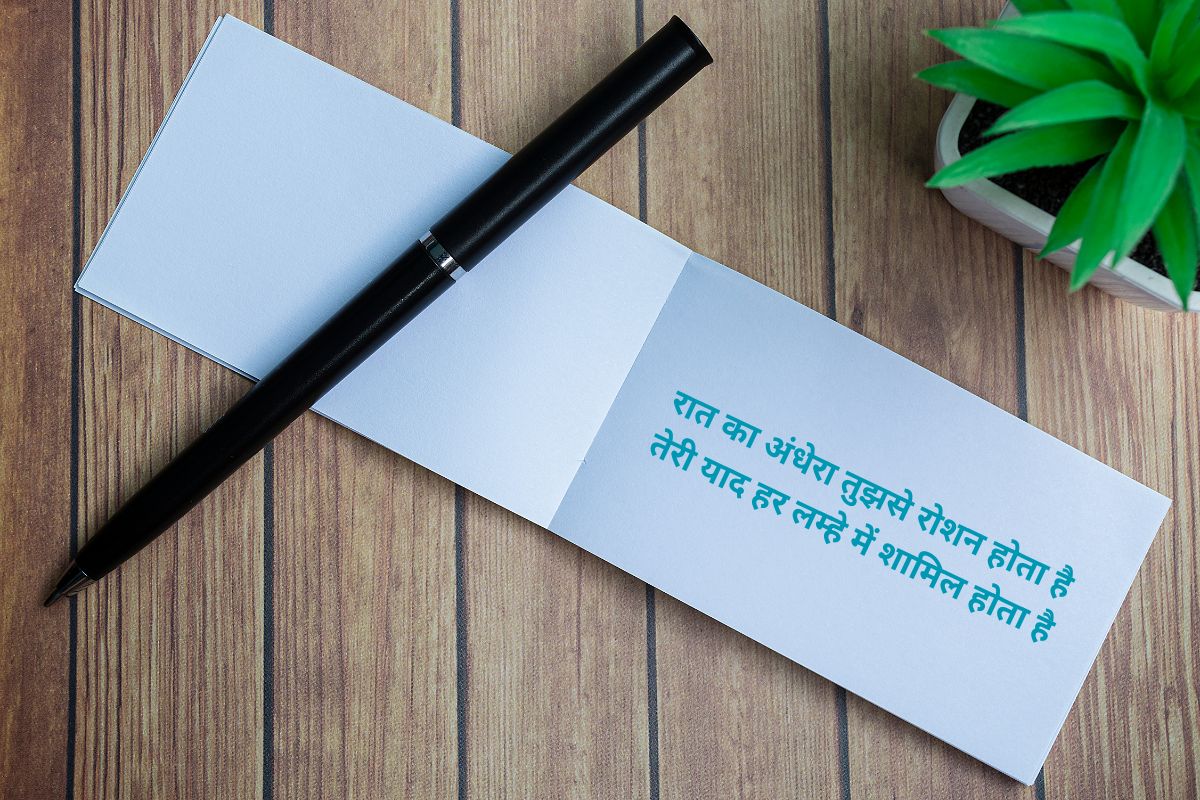 रात का अंधेरा तुझसे रोशन होता है
तेरी याद हर लम्हे में शामिल होता है